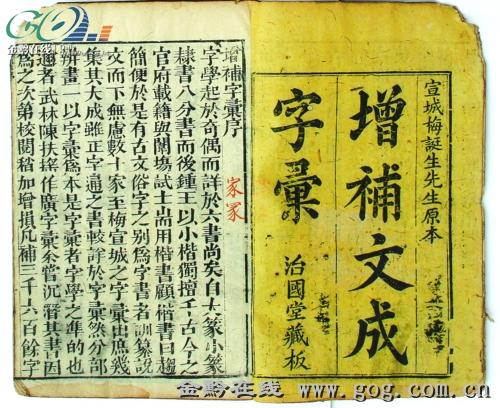 宣城梅誕生先生原本
增補文成
字彙
治國堂藏板
增補字彙序
字學起於奇偶而詳於六書尚矣自大篆小篆
隷書八分書而後鍾王以小楷獨擅千古今之
官府載籍與闈塲試士尚用楷書顧楷書日趨
簡便於是有古文俗字之别為字書者訓纂說
文而下無慮數十家至梅宣城之字彙出庶幾
集其大成雖正字通之書較詳於字彙然分部
辨畫一以字彙為本是字彙者字學之準的也
邇者武林陳扶揺作廣字彙叅嘗沉酣其書因
為之次第校閱稍加增損凡補三千六百餘字
家冡
金黔在线
金黔在线 www.gog.com.cn